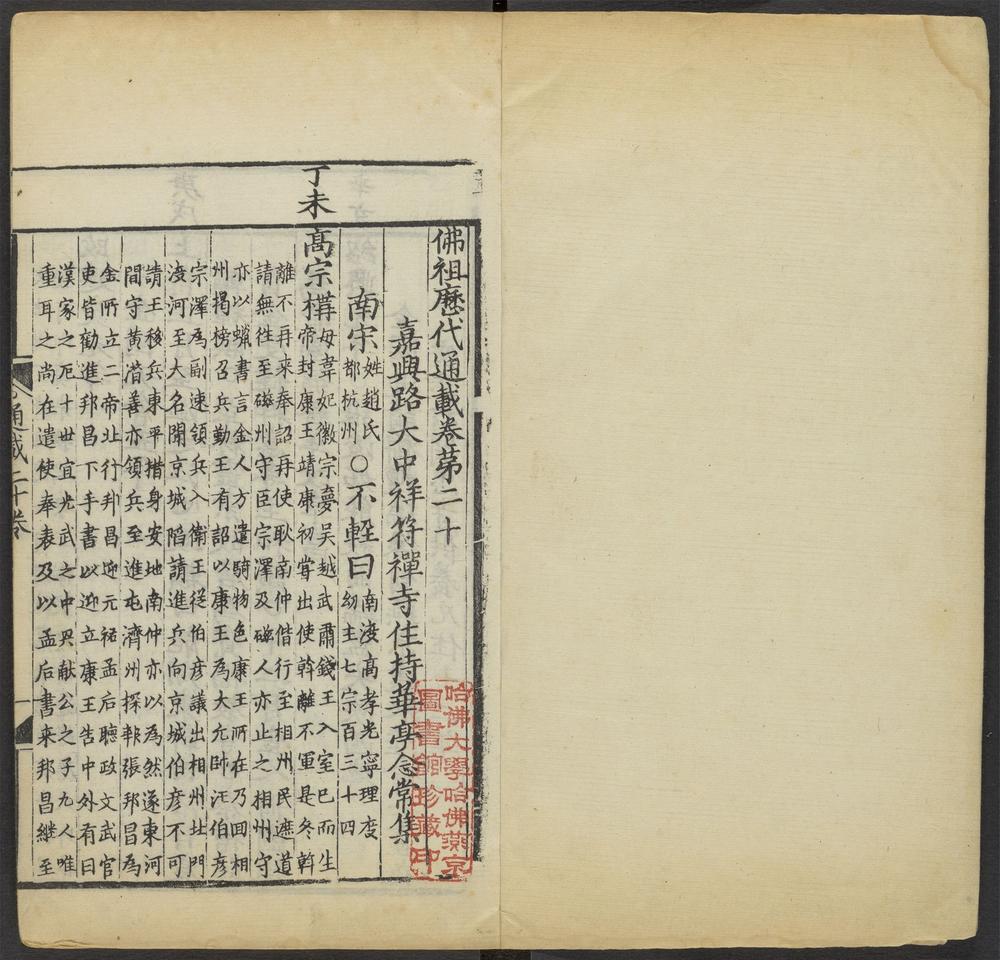 佛祖歷代通載卷第二十
嘉興路大中祥符禪寺住持華亭念常集
南宋姓趙氏都杭州○不軽曰南渡髙孝光寧理度幼主七宗百三十四
丁未
髙宗構母韋妃徽宗夢吳越武肅錢王入室已而生
帝封康王靖康初嘗出使斡離不軍是冬斡
離不再來奉詔再使耿南仲偕行至相州民遮道
請無徃至磁州守臣宗澤及磁人亦止之相州守
亦以蠟書言金人方遣騎物色康王所在乃回相
州揭榜召兵勤王有詔以康王為大元帥汪伯彦
宗澤為副速領兵入衛王從伯彦議出相州北門
渡河至大名聞京城陷請進兵向京城伯彦不可
請王移兵東平措身安地南仲亦以為然遂東河
間守黄潛善亦領兵至進屯濟州探報張邦昌為
金所立二帝北行邦昌迎元祐孟后聽政文武官
吏皆勸進邦昌下手書以迎立康王告中外有曰
漢家之厄十世宜光武之中興献公之子九人唯
重耳之尚在遣使奉表及以孟后書来邦昌継至
通載二十卷
哈佛大學哈佛燕京
圖書館珍藏印